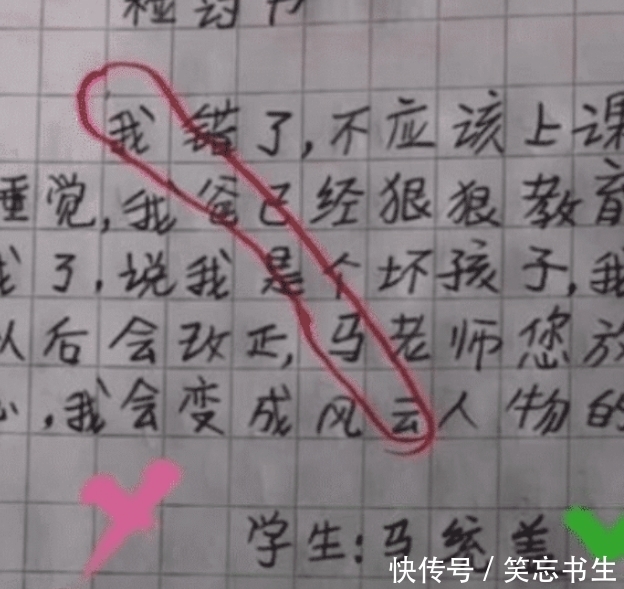 检讨书
我错了,不应该上课
睡觉,我爸已经狠狠教育
我了,说我是个坏孩子,我
以后会改正,马老师您放
心,我会变成风云人物的
学生:马统美
快传号 / 笑忘书生